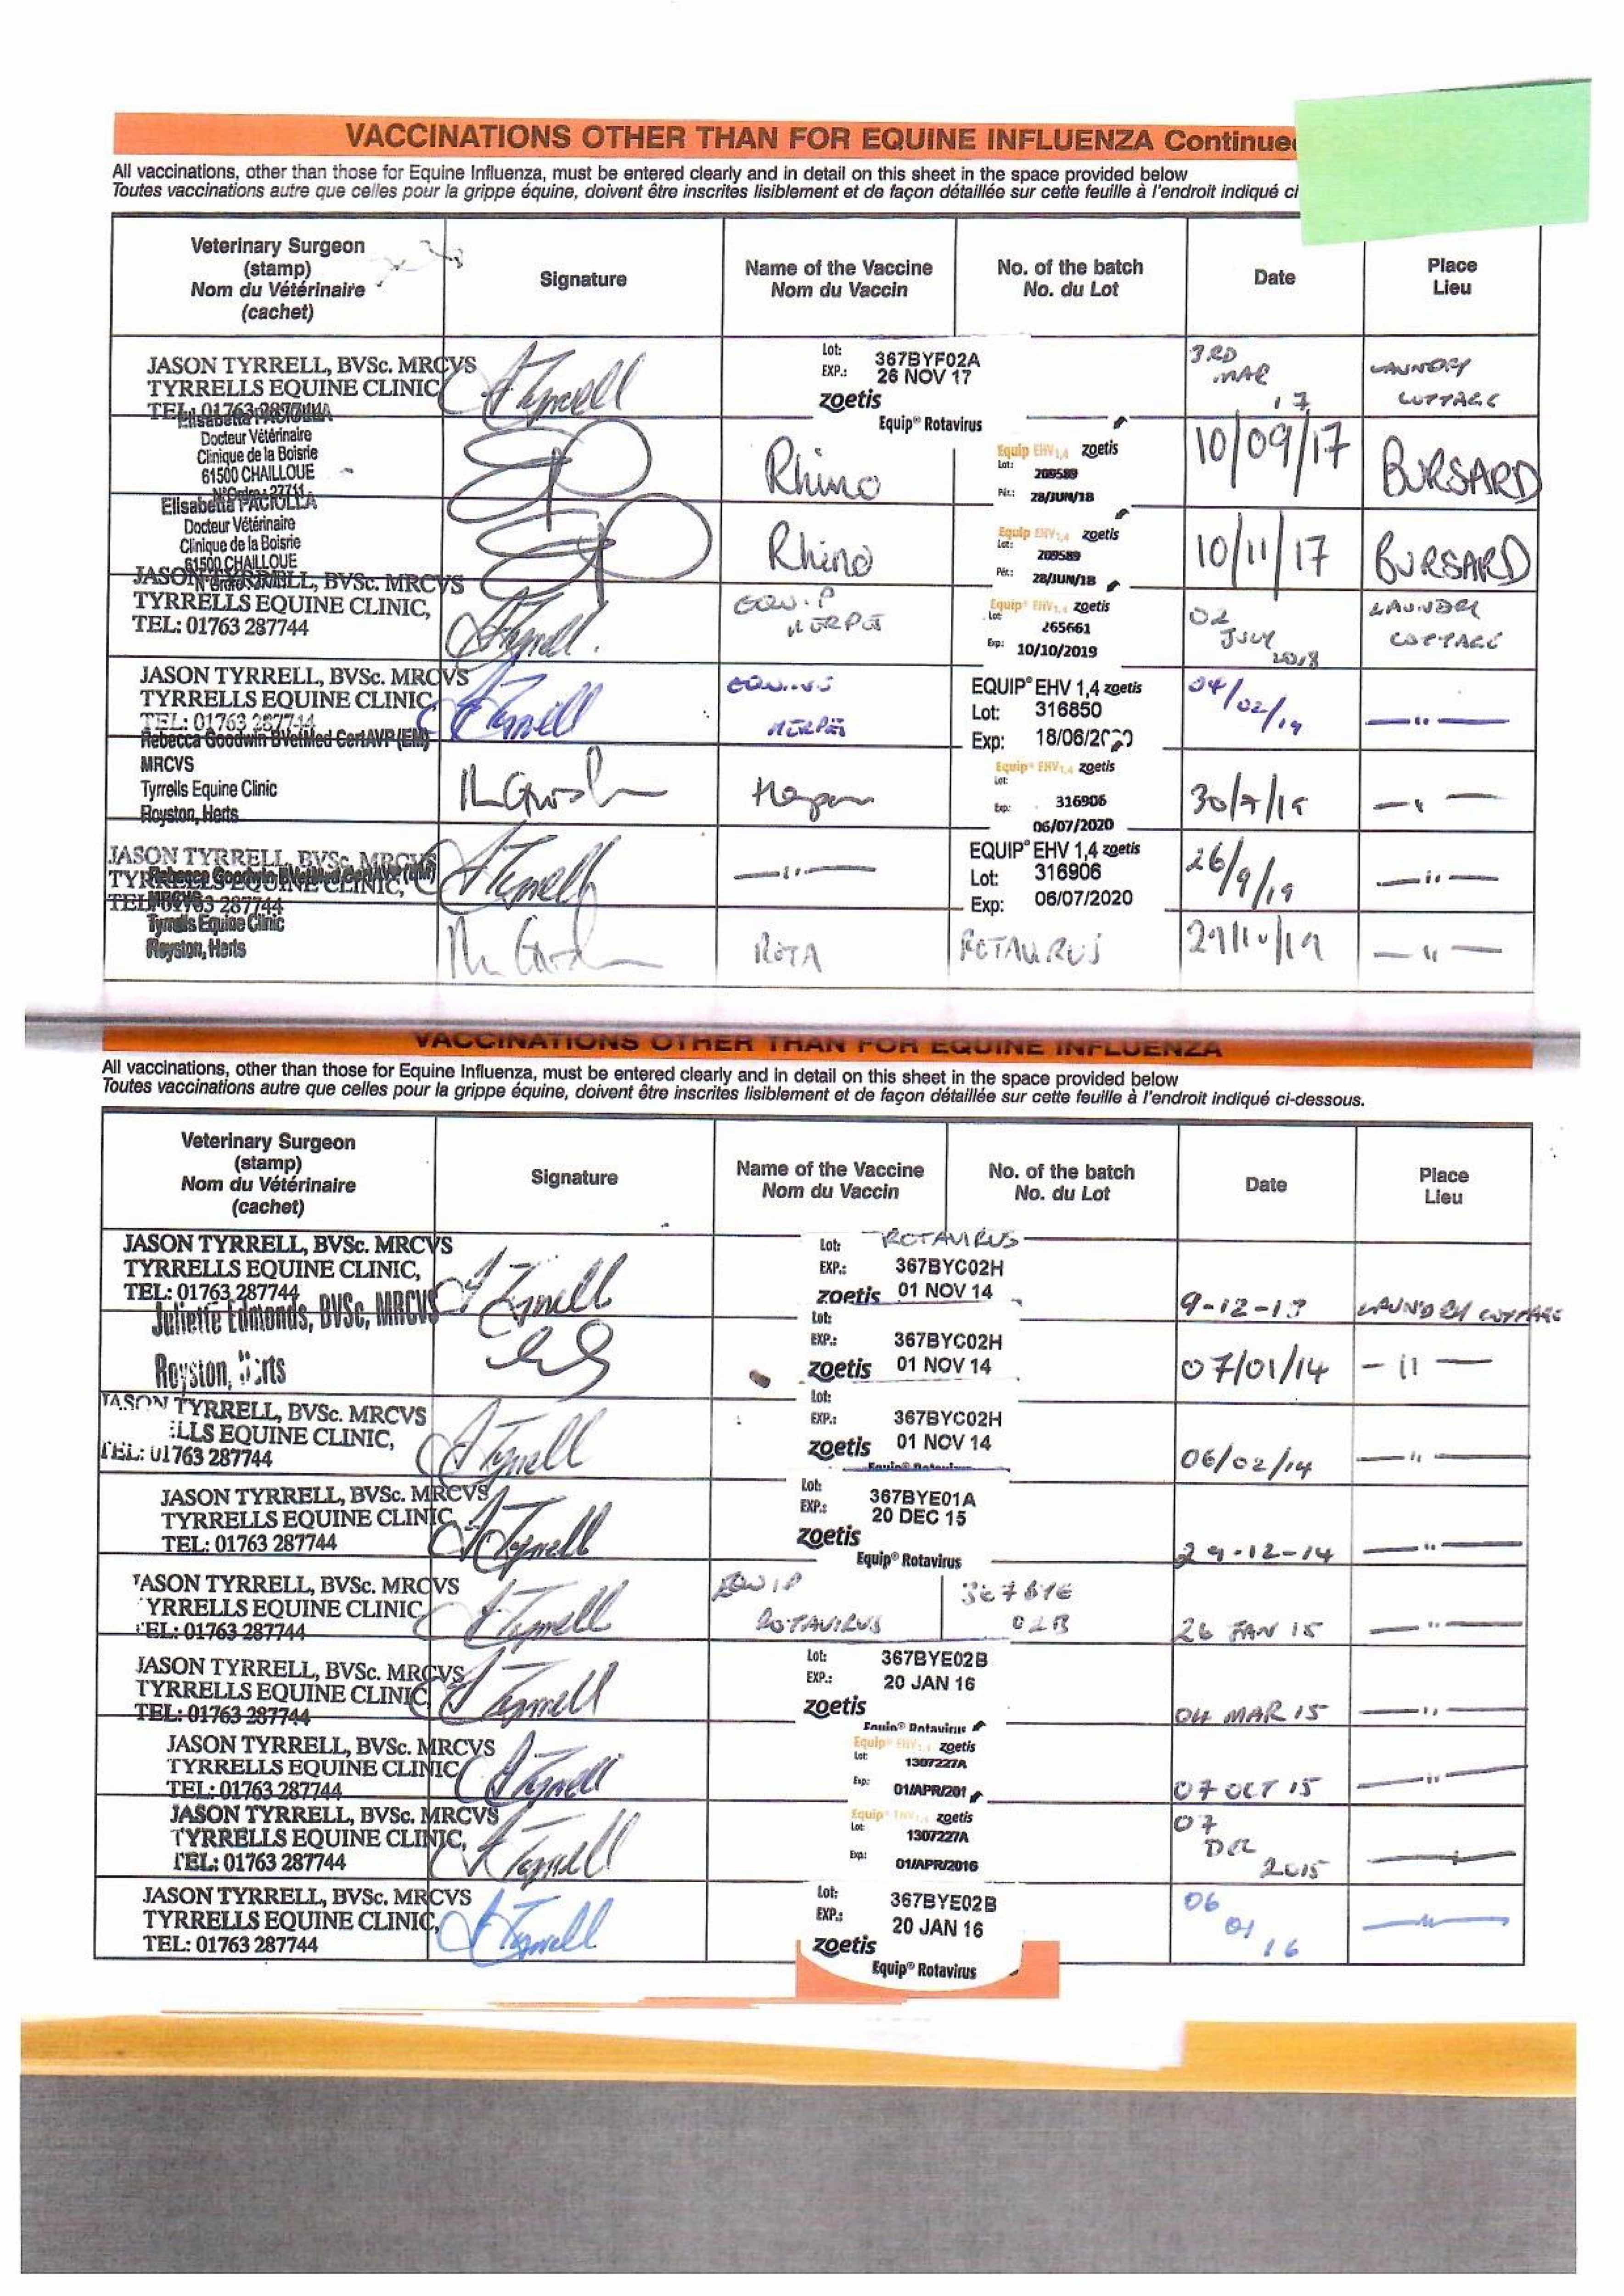 VACCINATIONS OTHER THAN FOR EQUINE INFLUENZA Continue
All vaccinations, other than those for Equine Influenza, must be entered clearly and in detail on this sheet in the space provided below
Toutes vaccinations autre que celles pour la grippe équine, doivent être inscrites lisiblement et de façon détaillée sur cette feuille à l'endroit indiqué ci
Veterinary Surgeon
(stamp)
Nom du Vétérinaire
(cachet)
Signature
Name of the Vaccine
Nom du Vaccin
No. of the batch
No. du Lot
Date
Place
Lieu
JASON TYRRELL, BVSc. MRCVS
TYRRELLS EQUINE CLINIC
TEL: 01763 287744
Lot: 367BYF02A
EXP.: 26 NOV 17
zoetis
Equip® Rotavirus
3RD
MAR
17
LAUNDRY
COTTAGE
Elisabetta PACIOLLA
Docteur Vétérinaire
Clinique de la Boisrie
61500 CHAILLOUE
N°Ordre: 27711
Rhino
Equip EHV1,4 zoetis
Lot: 209589
Pér.: 28/JUN/18
10/09/17
BURSARD
Elisabetta PACIOLLA
Docteur Vétérinaire
Clinique de la Boisrie
61500 CHAILLOUE
Rhino
Equip EHV1,4 zoetis
Lot: 209589
Pér.: 28/JUN/18
10/11/17
BURSARD
JASON TYRRELL, BVSc. MRCVS
TYRRELLS EQUINE CLINIC,
TEL: 01763 287744
EQUIP
HERPES
Equip® EHV1,4 zoetis
Lot: 265661
Exp: 10/10/2019
02
JULY
2018
LAUNDRY
COTTAGE
JASON TYRRELL, BVSc. MRCVS
TYRRELLS EQUINE CLINIC,
TEL: 01763 287744
HERPES
EQUIP® EHV 1,4 zoetis
Lot: 316850
Exp: 18/06/2020
04/02/19
— " —
Rebecca Goodwin BVetMed CertAVP(EM)
MRCVS
Tyrrells Equine Clinic
Royston, Herts
Equip® EHV1,4 zoetis
Lot: 316906
Exp: 06/07/2020
30/7/19
— " —
JASON TYRRELL, BVSc. MRCVS
TYRRELLS EQUINE CLINIC,
TEL: 01763 287744
— " —
EQUIP® EHV 1,4 zoetis
Lot: 316906
Exp: 06/07/2020
26/9/19
— " —
Rebecca Goodwin BVetMed CertAVP(EM)
MRCVS
Tyrrells Equine Clinic
Royston, Herts
ROTA
ROTAVIRUS
29/10/19
— " —
VACCINATIONS OTHER THAN FOR EQUINE INFLUENZA
All vaccinations, other than those for Equine Influenza, must be entered clearly and in detail on this sheet in the space provided below
Toutes vaccinations autre que celles pour la grippe équine, doivent être inscrites lisiblement et de façon détaillée sur cette feuille à l'endroit indiqué ci-dessous.
Veterinary Surgeon
(stamp)
Nom du Vétérinaire
(cachet)
Signature
Name of the Vaccine
Nom du Vaccin
No. of the batch
No. du Lot
Date
Place
Lieu
JASON TYRRELL, BVSc. MRCVS
TYRRELLS EQUINE CLINIC,
TEL: 01763 287744
ROTAVIRUS
Lot:
EXP.: 367BYC02H
zoetis 01 NOV 14
9-12-13
LAUNDRY COTTAGE
Juliette Edmonds, BVSc, MRCVS
Royston,
Lot:
EXP.: 367BYC02H
zoetis 01 NOV 14
07/01/14
- 11 —
JASON TYRRELL, BVSc. MRCVS
ELLS EQUINE CLINIC,
TEL: 01763 287744
Lot:
EXP.: 367BYC02H
zoetis 01 NOV 14
Equip® Rotavirus
06/02/14
— " —
JASON TYRRELL, BVSc. MRCVS
TYRRELLS EQUINE CLINIC
TEL: 01763 287744
Lot: 367BYE01A
EXP.: 20 DEC 15
zoetis
Equip® Rotavirus
29-12-14
— " —
JASON TYRRELL, BVSc. MRCVS
YRRELLS EQUINE CLINIC
TEL: 01763 287744
EQUIP
ROTAVIRUS
367BYE
02B
26 JAN 15
— " —
JASON TYRRELL, BVSc. MRCVS
TYRRELLS EQUINE CLINIC
TEL: 01763 287744
Lot: 367BYE02B
EXP.: 20 JAN 16
zoetis
Equip® Rotavirus
04 MAR 15
— " —
JASON TYRRELL, BVSc. MRCVS
TYRRELLS EQUINE CLINIC
TEL: 01763 287744
Equip® EHV1,4 zoetis
Lot: 1307227A
Exp: 01/APR/201
07 OCT 15
— " —
JASON TYRRELL, BVSc. MRCVS
TYRRELLS EQUINE CLINIC,
TEL: 01763 287744
Equip® EHV1,4 zoetis
Lot: 1307227A
Exp: 01/APR/2016
07
DEC
2015
JASON TYRRELL, BVSc. MRCVS
TYRRELLS EQUINE CLINIC,
TEL: 01763 287744
Lot: 367BYE02B
EXP.: 20 JAN 16
zoetis
Equip® Rotavirus
06
01
16
— " —